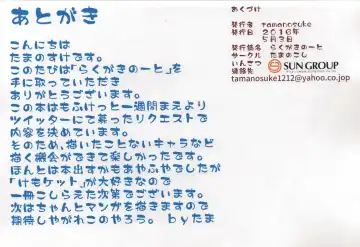 あとがき
こんにちは
たまのすけです。
このたびは「らくがきのーと」を
手に取っていただき
ありがとうございます。
この本はもふけっと一週間まえより
ツイッターにて募ったリクエストで
内容を決めています。
そのため、描いたことないキャラなど
描く機会ができて楽しかったです。
ほんとは本出すかもあやふやでしたが
「けもケット」が大好きなので
一冊こしらえた次第でございます。
次はちゃんとマンガを描きますので
期待しやがれこのやろう。 byたま
おくづけ
発行者 tamanosuke
発行日 2016年
5月3日
発行誌名 らくがきのーと
サークル たまのこし
いんさつ SUN GROUP
連絡先
tamanosuke1212@yahoo.co.jp